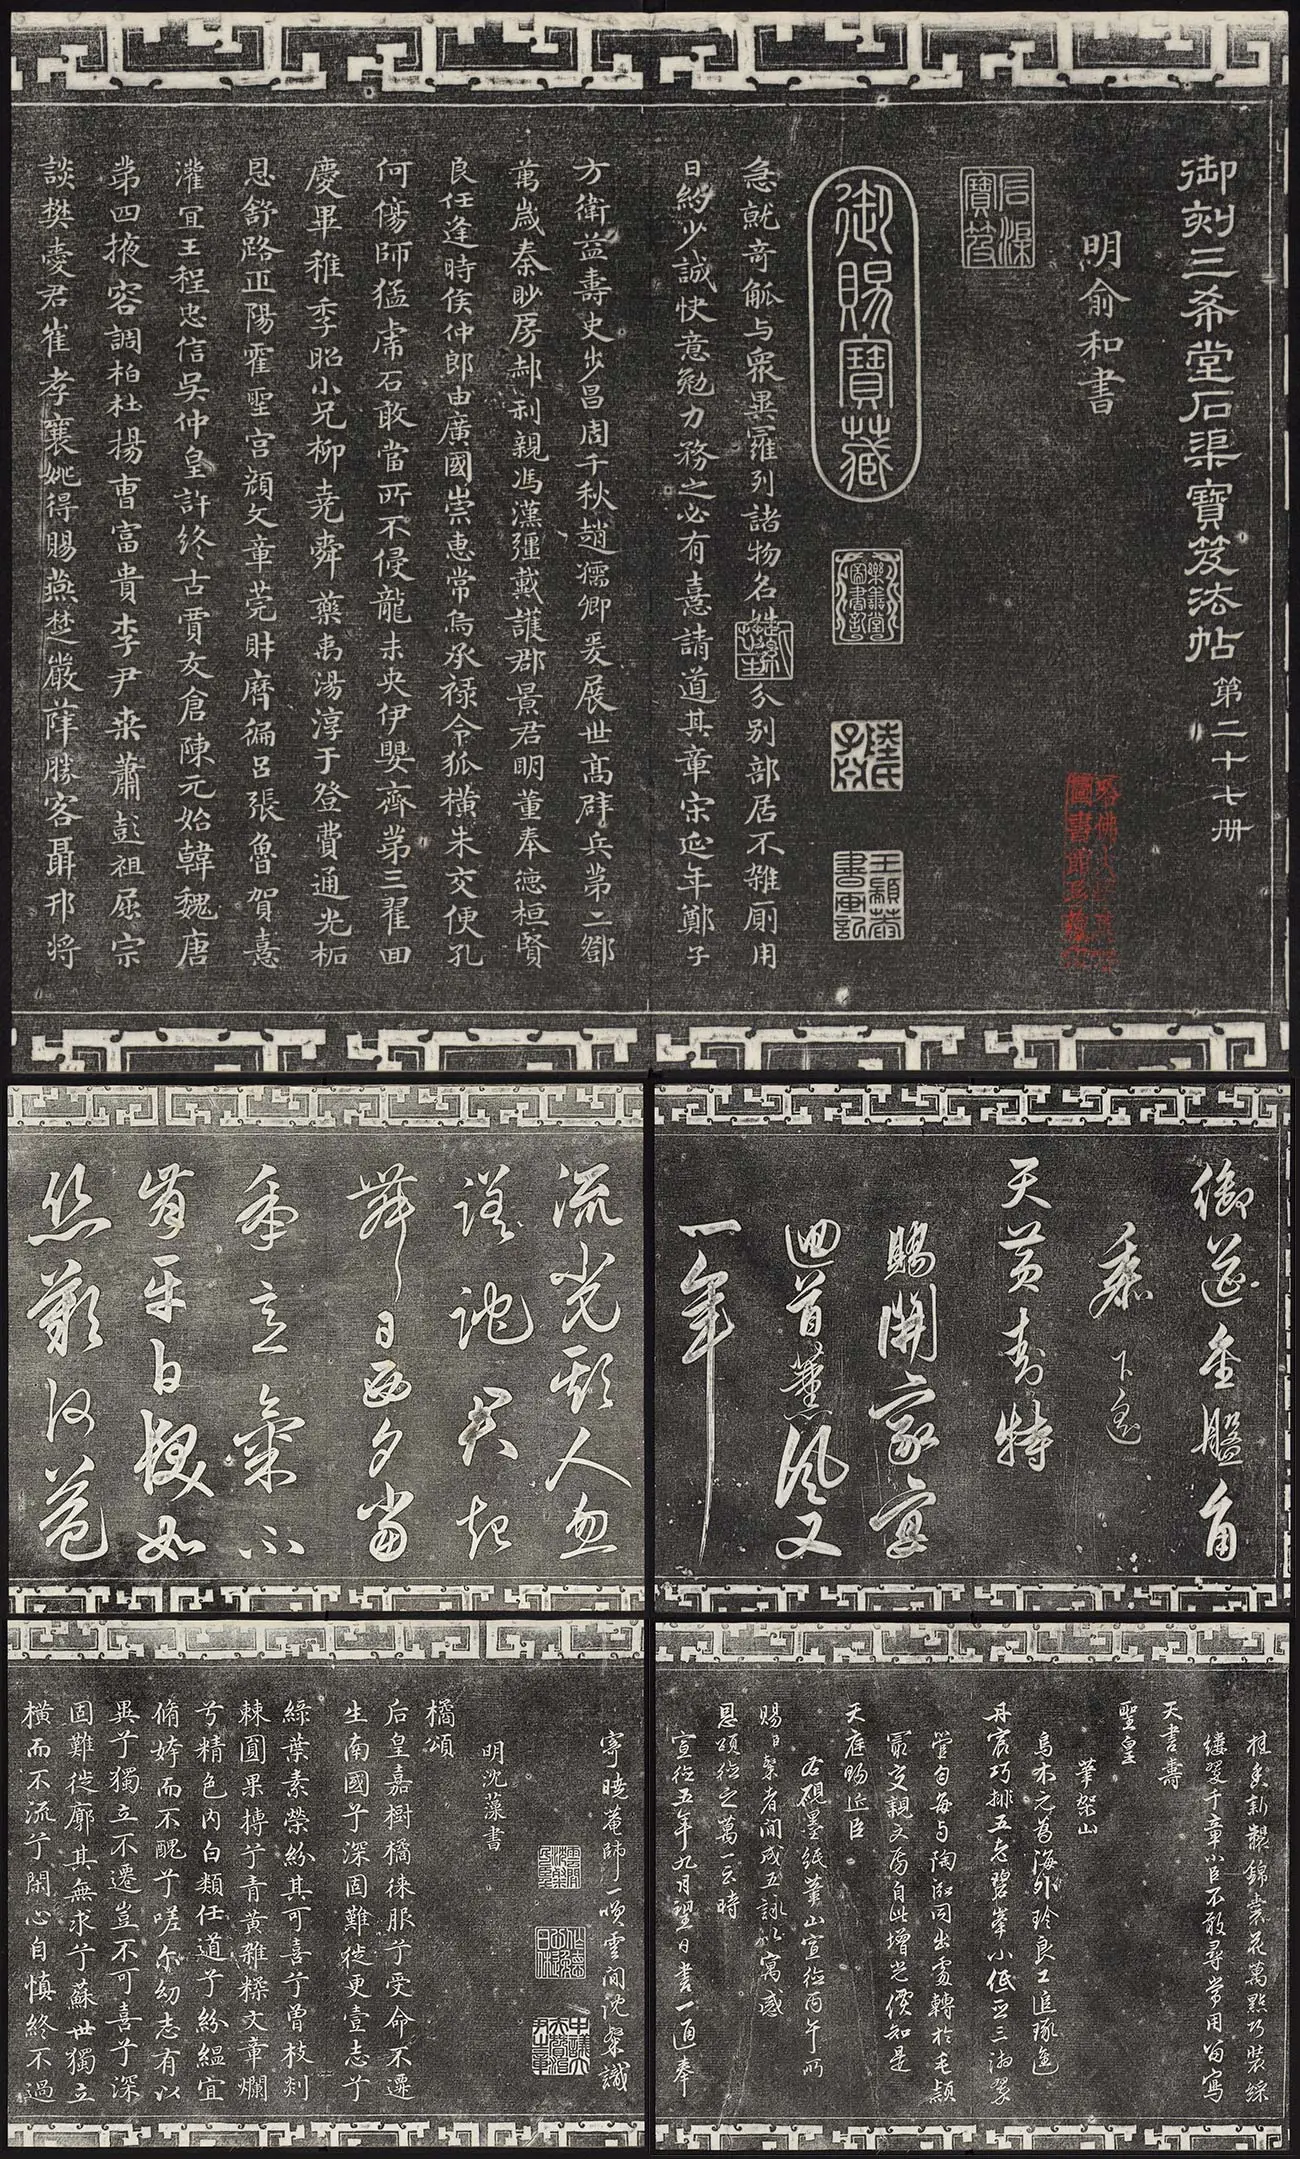 御刻三希堂石渠寶笈法帖 第二十七册
明俞和書
石渠寶笈
御賜寶藏
樂善堂圖書記
陸氏子孫
王穎莽書画記
急就奇觚与衆異羅列諸物名姓分别部居不雜厠用
日約少誠快意勉力務之必有憙請道其章宋延年鄭子
方衛益壽史步昌周千秋趙孺卿爰展世高辟兵第二鄧
萬歲秦眇房郝利親馮漢彊戴護郡景君明董奉德桓賢
良任逢時侯仲郎由廣國崇惠常烏承禄令狐横朱交便孔
何傷師猛虎石敢當所不侵龍未央伊嬰齊第三翟回
慶畢稚季昭小兄柳堯舜藥禹湯淳于登費通光柘
恩舒路正陽霍聖宮顔文章莞財曆徧吕張魯賀憙
灌宜王程忠信吳仲皇許終古賈友倉陳元始韓魏唐
第四掖容調柏杜揚曹富貴李尹桑蕭彭祖屈宗
談樊愛君崔孝襄姚得賜燕楚嚴薛勝客聶邗将
御筵金盤自
天
黄封特
賜開家宴
迴首薰風又
一年
流光欺人忽
蹉跎君起
舞日西夕當
年意氣不
肯平白髮如
絲歎何益
桂香新製錦裳花萬點巧裝綵
縷翠千章小臣不敢尋常用留寫
天書壽
聖皇
筆架山
烏木元為海外珍良工追琢進
丹宸巧排五老碧峯小低立三湘翠
管勻每与陶泓同出處轉於毛穎
最交親文房自此增光價知是
天庭賜近臣
右硯墨紙筆山宣德丙午所
賜日繫者間成五詠以寓感
恩頌德之萬一云時
宣德五年九月望日書一通奉
寄曉菴師一噗雲间沈粲識
明沈藻書
橘頌
后皇嘉樹橘徠服兮受命不遷
生南國兮深固難徙更壹志兮
緑葉素榮紛其可喜兮曾枝剡
棘圓果摶兮青黄雜糅文章爛
兮精色内白類任道兮紛緼宜
脩姱而不醜兮嗟尔幼志有以
異兮獨立不遷豈不可喜兮深
固難徙廓其無求兮蘇世獨立
横而不流兮閑心自慎終不過